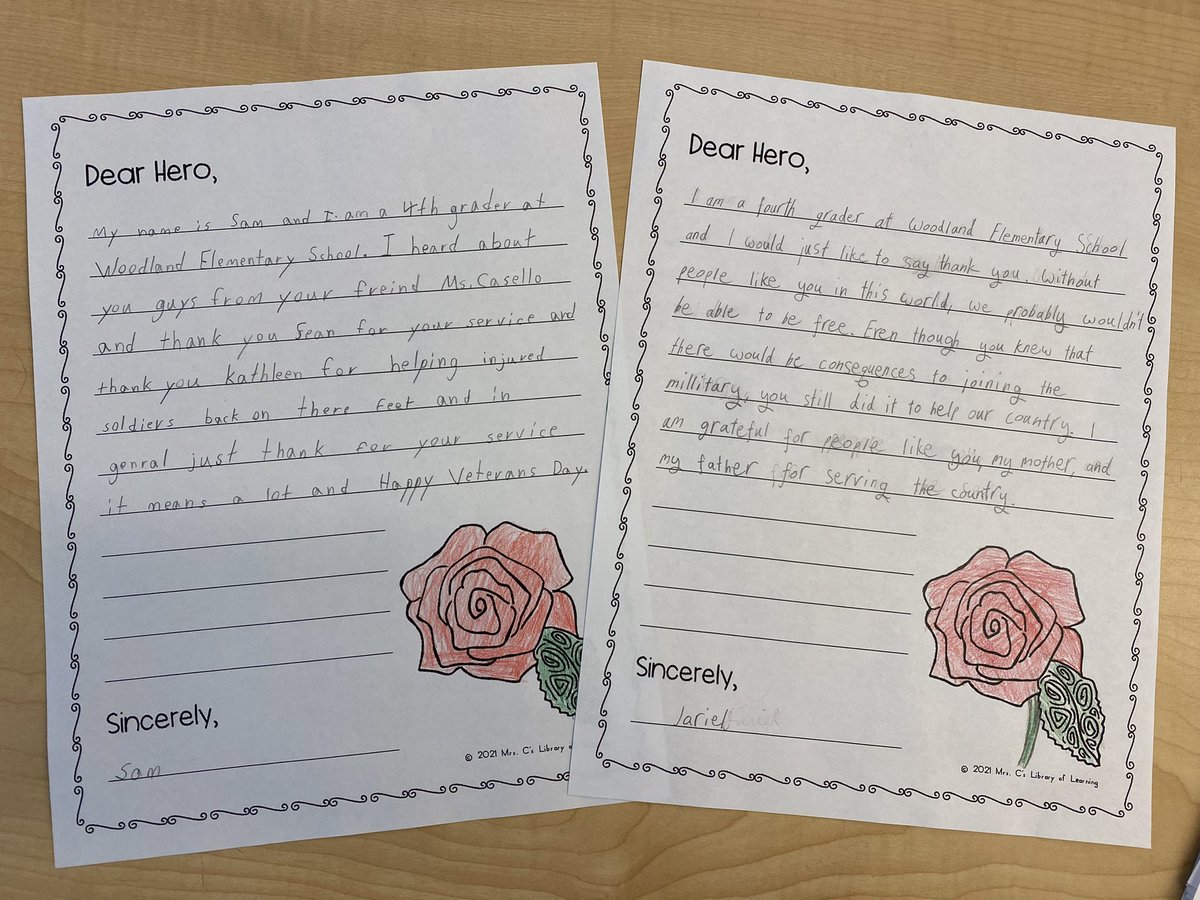 Dear Hero,
My name is Sam and I am a 4th grader at
Woodland Elementary School. I heard about
you guys from your freind Ms. Casello
and thank you Sean for your service and
thank you Kathleen for helping injured
soldiers back on there feet and in
genral just thank for your service
it means a lot and Happy Veterans Day.
Sincerely,
Sam
© 2021 Mrs. C's Library of
Dear Hero,
I am a fourth grader at Woodland Elementary School
and I would just like to say thank you. Without
people like you in this world, we probably wouldn't
be able to be free. Even though you knew that
there would be consequences to joining the
millitary, you still did it to help our country. I
am grateful for people like you, my mother, and
my father for serving the country.
Sincerely,
Jariel
© 2021 Mrs. C's Library of Learning